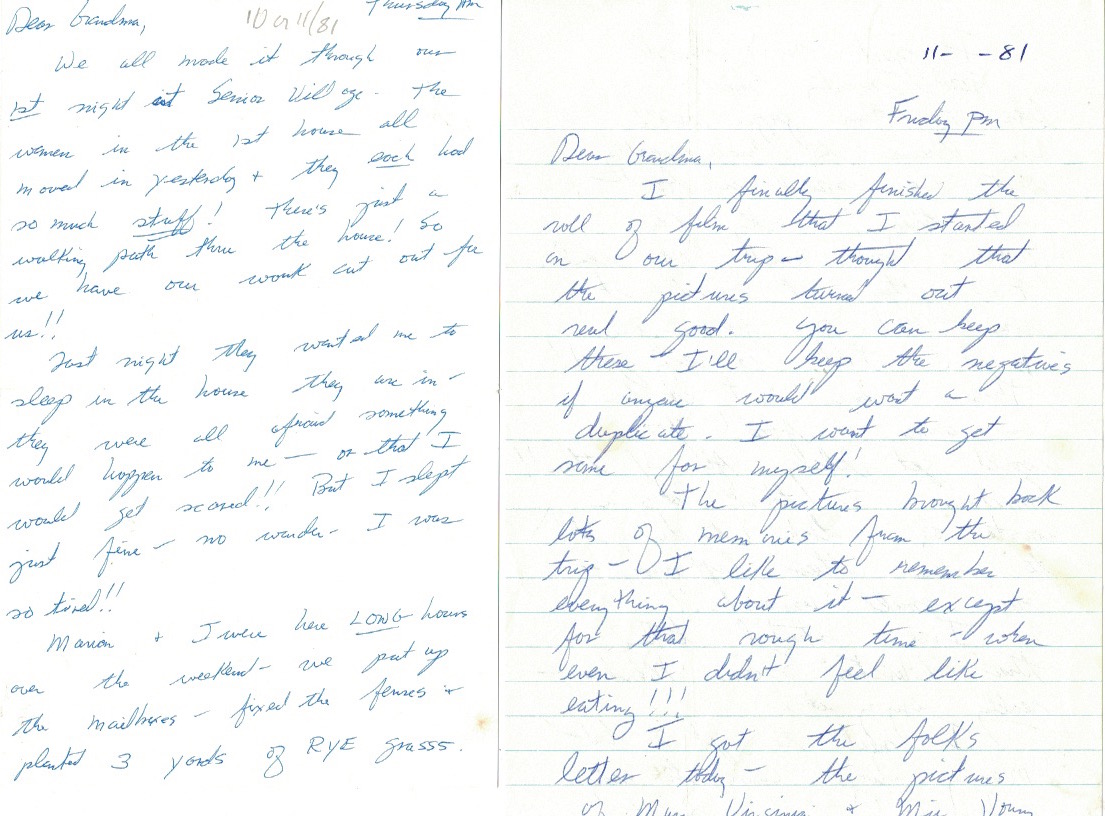 Thursday pm
Dear Grandma,
10 or 11/81
We all made it through our
1st night at Senior Village. The
women in the 1st house all
moved in yesterday + they each had
so much stuff! There's just a
walking path thru the house! So
we have our work cut out for
us!!
Last night they wanted me to
sleep in the house they are in -
they were all afraid something
would happen to me — or that I
would get scared!! But I slept
just fine - no wonder - I was
so tired!!
Marion + I were here LONG hours
over the weekend - we put up
the mailboxes - fixed the fences +
planted 3 yards of RYE grasss.
11- -81
Friday pm
Dear Grandma,
I finally finished the
roll of film that I started
on our trip - thought that
the pictures turned out
real good. You can keep
these - I'll keep the negatives
if anyone would want a
duplicate. I want to get
some for myself!
The pictures brought back
lots of memories from the
trip - I like to remember
everything about it - except
for that rough time - when
even I didn't feel like
eating!!!
I got the folks
letter today - the pictures
of Virginia +